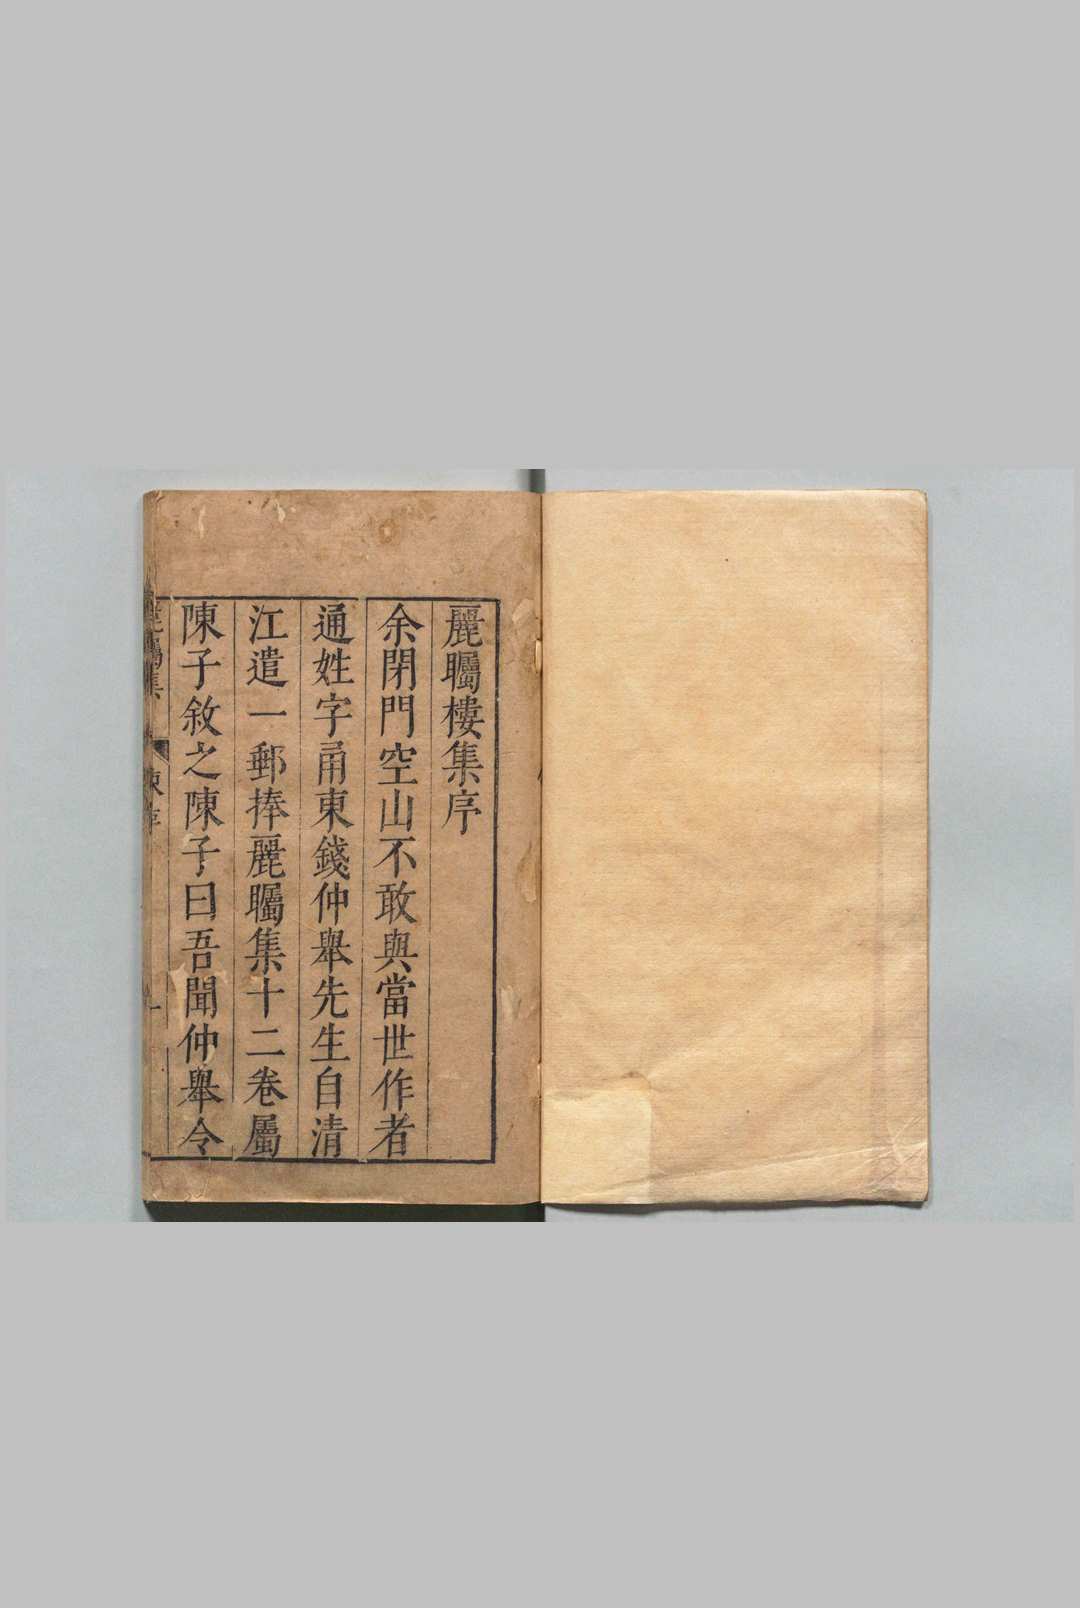 麗矚樓集序
余閉門空山不敢與當世作者
通姓字甬東錢仲舉先生自清
江遣一郵捧麗矚集十二卷屬
陳子敘之陳子曰吾聞仲舉令